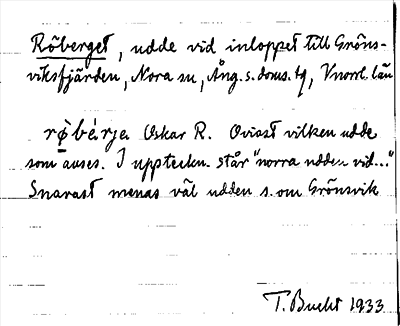 Röberget, udde vid inloppet till Gröns-
viksfjärden, Nora sn, Ång. s. doms. tg, Vnorrl. län
rø̀bæ̀rja Oskar R. Ovisst vilken udde
som avses. I uppteckn. står "norra udden vid..."
Snarast menas väl udden s. om Grönsvik
T. Bucht 1933